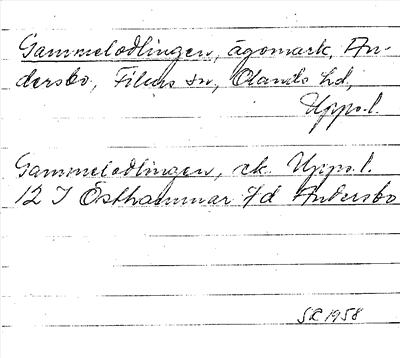 Gammelodlingen, ägomark, An-
dersbo, Films sn, Olands hd,
Upps.l.
Gammelodlingen, ek. Upps.l.
12 I Östhammar 7/d Andersbo
SR 1958